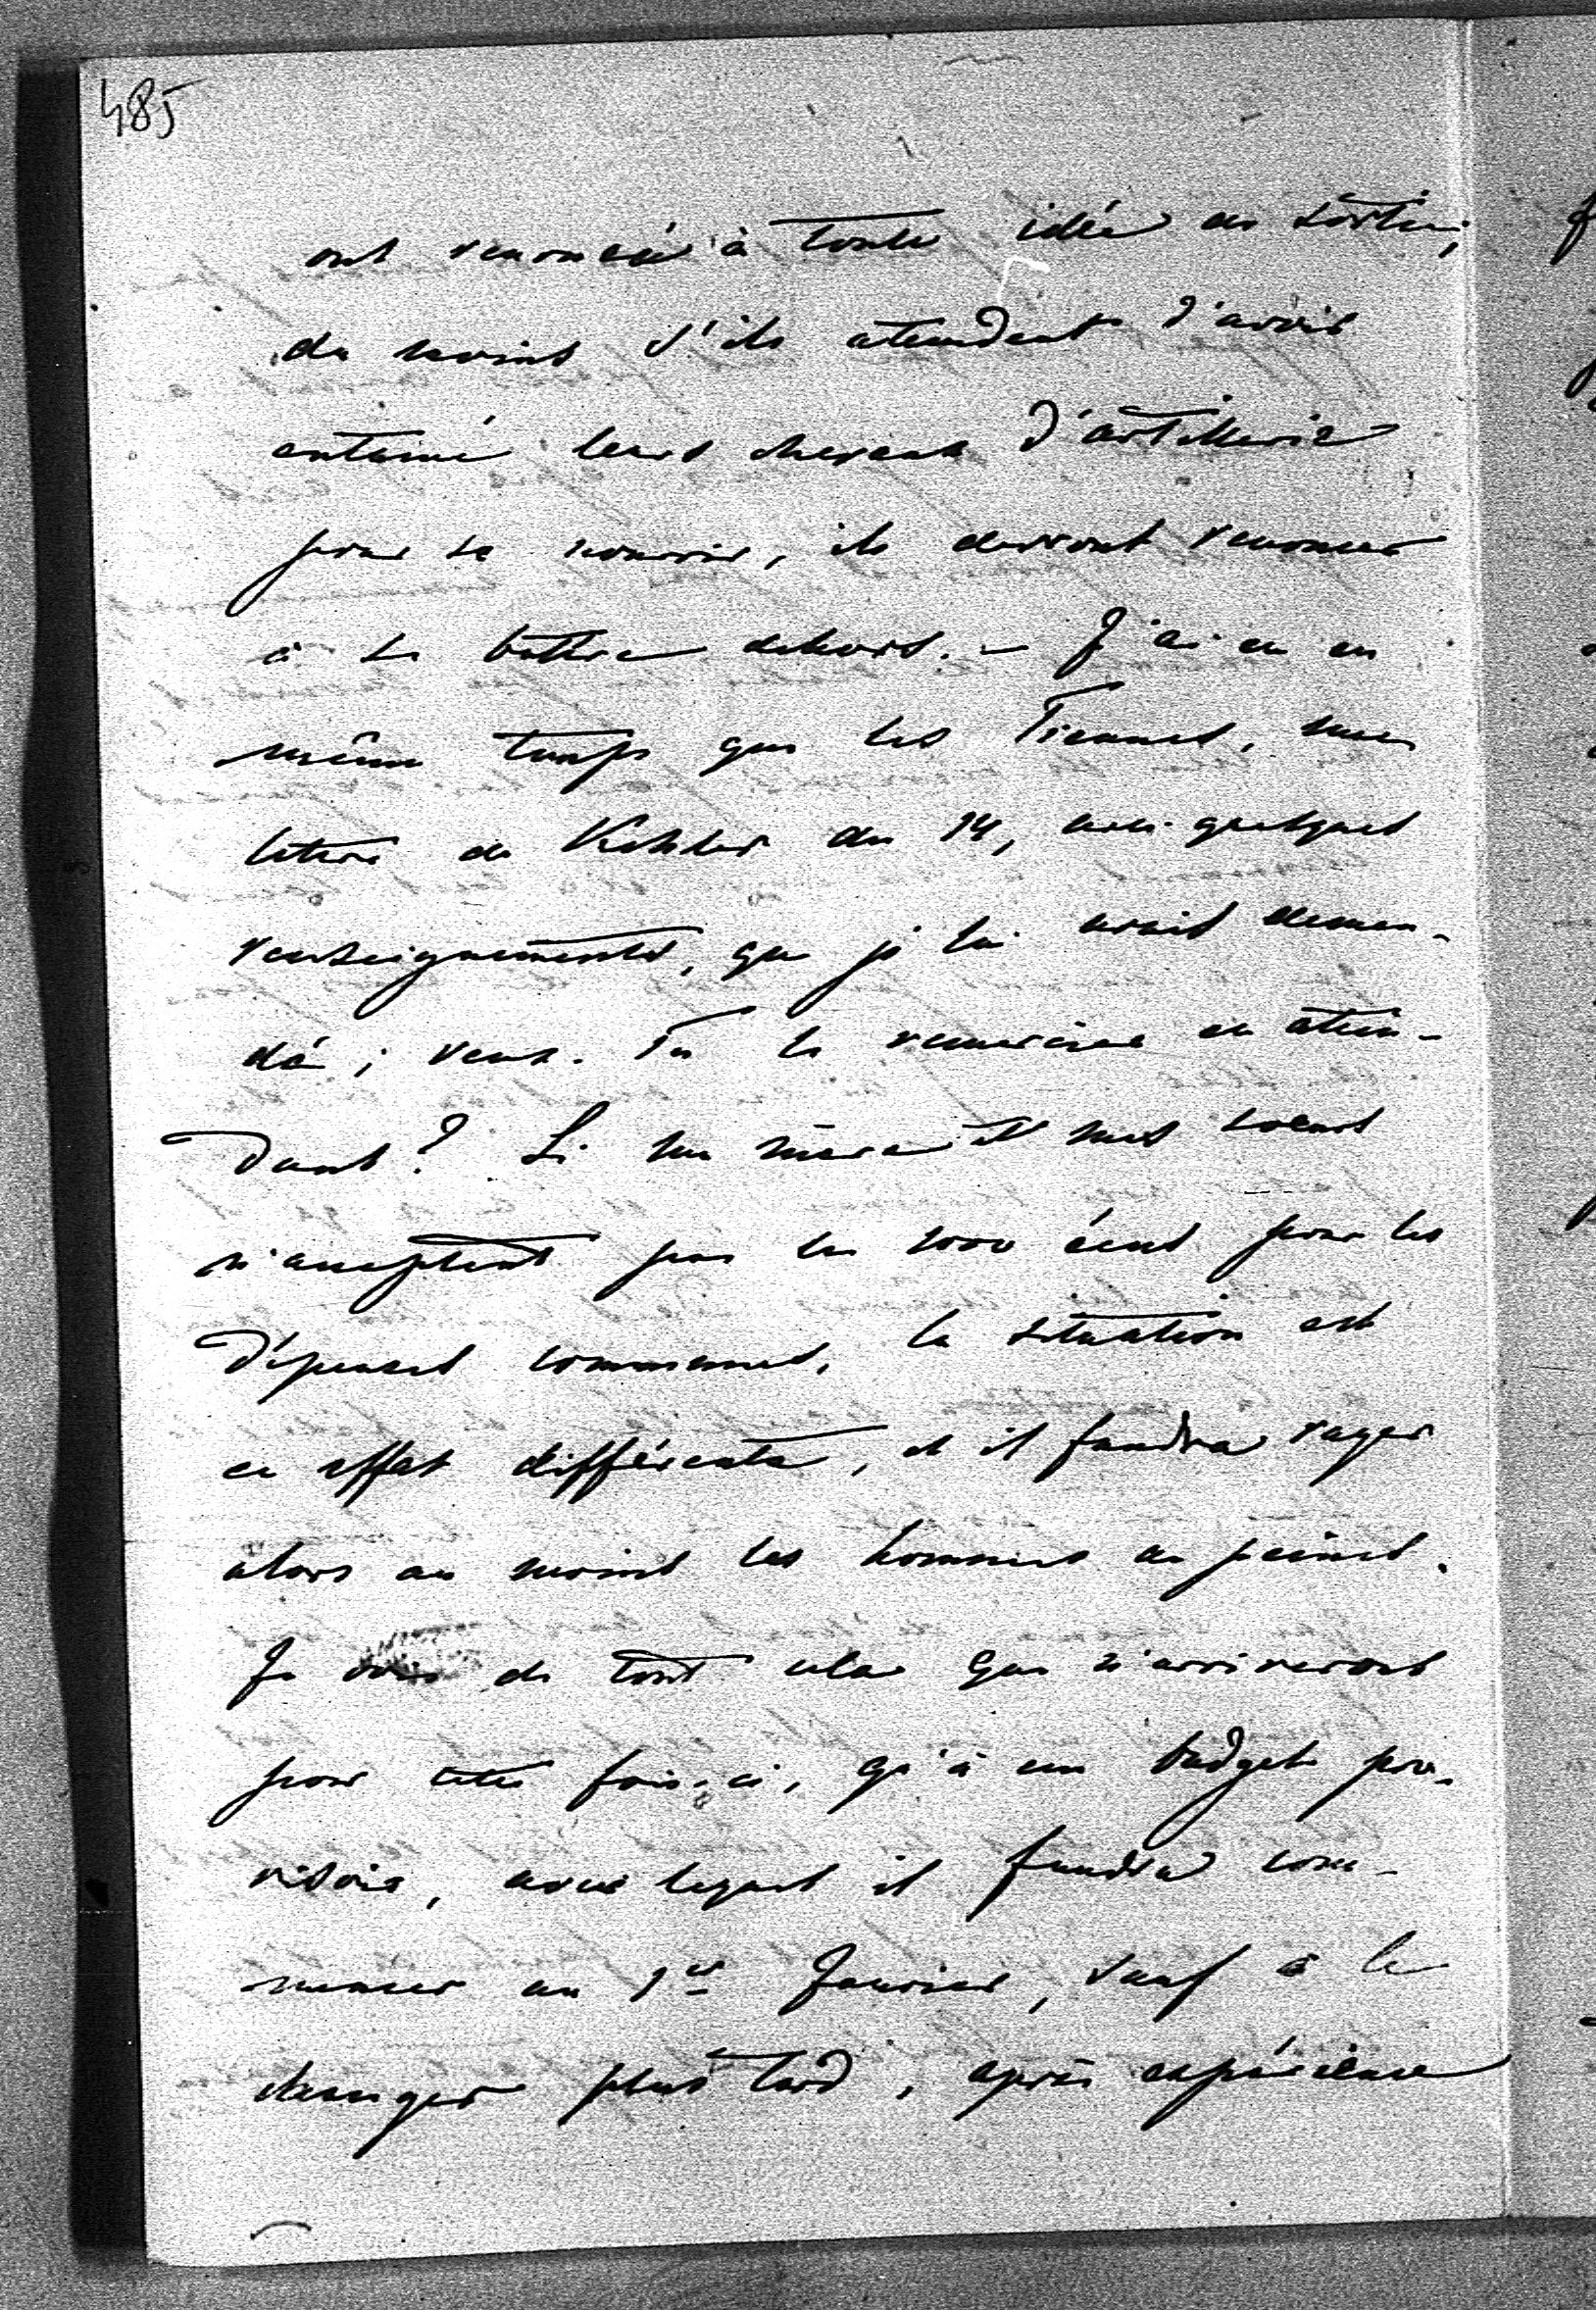 485
ont renoncé à toute idée de sortir;
du moins s'ils atendent d'avoir
entamé leurs chevaux d'artillerie
pour se nourrir, ils devront renoncer
à se battre dehors. – J'ai eu en
même temps que les Tiennes, une
lettre de Kohler du 14, avec quelques
renseignements, que je lui avais deman-
dé; veux-Tu le remercier en aten-
dant? Si ma mère et mes soeurs
n'acceptent pas les 1000 écus pour les
dépenses communes, la situation est
en effet différente, et il faudra rayer
alors au moins les hommes de peines.
Je vois de tout cela que n'arriverons
pour cette fois-ci, qu'à un budget pro-
visoire, avec lequel il faudra com-
mencer au 1er Janvier, sauf à le
changer plus tard, après expérience